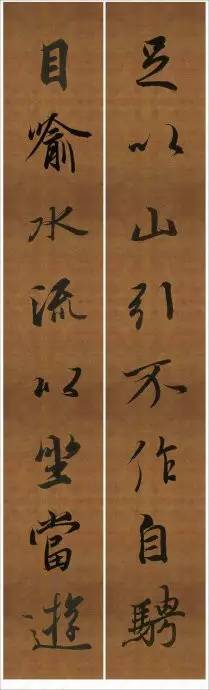 足以山引不作自騁
目喻水流以坐當遊